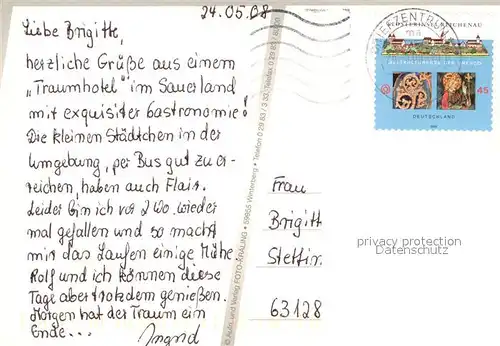 24.05.08
Liebe Brigitte,
herzliche Grüße aus einem
„Traumhotel" im Sauerland
mit exquisiter Gastronomie!
Die kleinen Städtchen in der
Umgebung, per Bus gut zu er-
reichen, haben auch Flair.
Leider bin ich vor 2 Wo. wieder
mal gefallen und so macht
mir das Laufen einige Mühe.
Rolf und ich können diese
Tage aber trotzdem genießen.
Morgen hat der Traum ein
Ende...
Ingrid
© Auto. und Verlag FOTO-KRÄLING • 59955 Winterberg • Telefon 0 29 83 /
KLOSTERINSEL REICHENAU
WELTKULTURERBE DER UNESCO
45
DEUTSCHLAND
BRIEFZENTRUM
Frau
Brigitt
Stettin
63128
privacy protection
Datenschutz